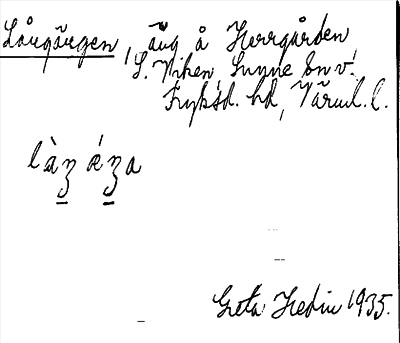 Långängen, äng å Herrgården,
S. Viken, Sunne sn v.
Fryksd. hd, Värml. l.
làꜫ ǽꜫa
Greta Hedin 1935.